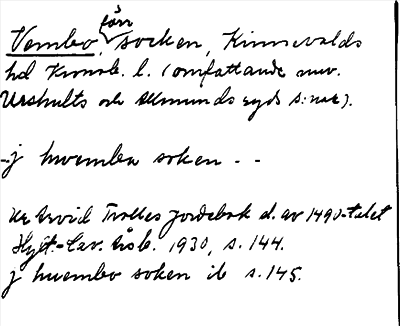 Vembo, förr socken, Kinnevalds
hd Kronob. l. (omfattande nuv.
Urshults och Almundsryds s:nar).
-j hwembo soken - -
Ur Arvid Trolles jordebok d. av 1490-talet
Hylt.-Cav. Årsb. 1930, s. 144.
j hwembo soken ib s. 145.